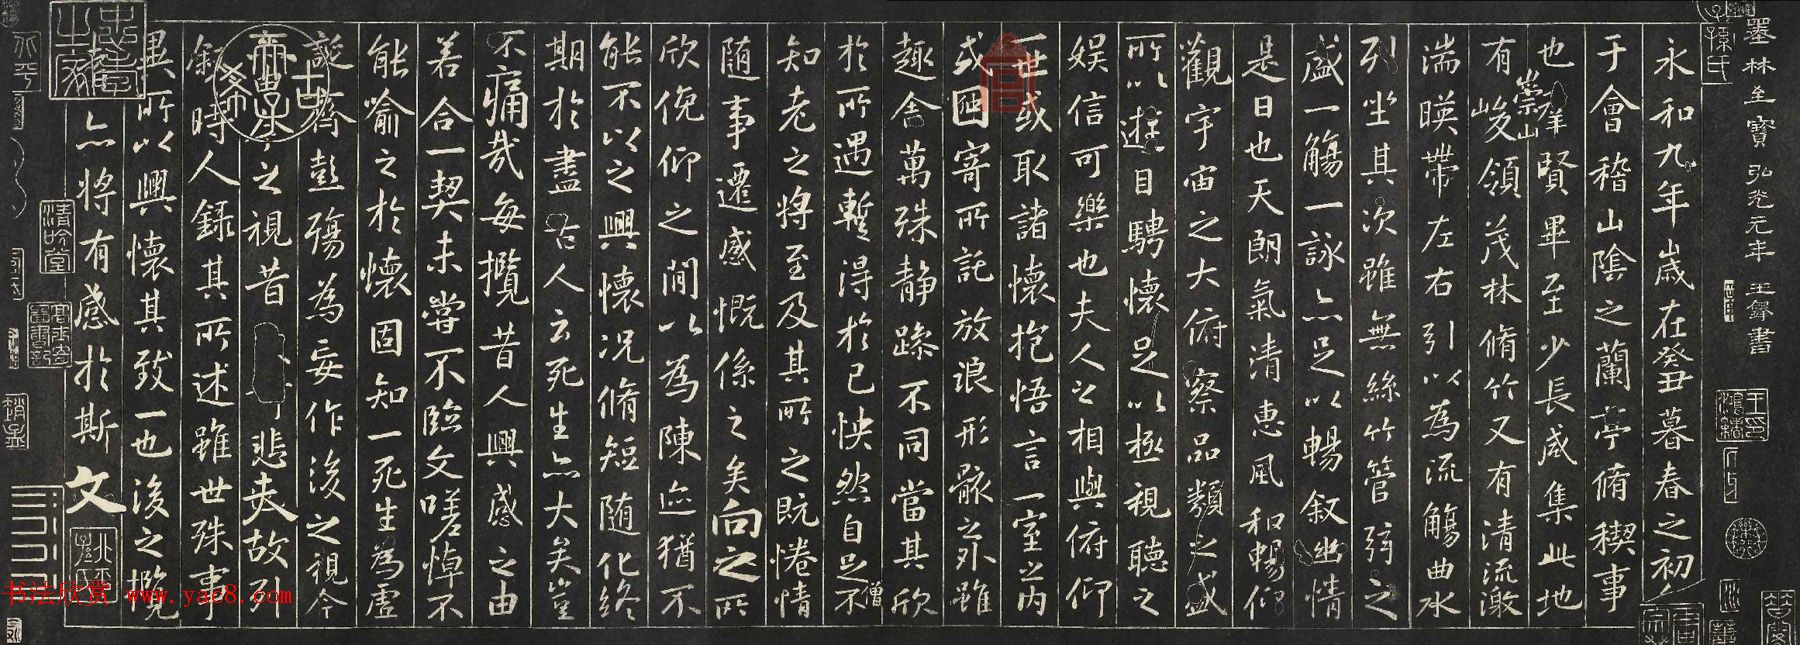 墨林至寳 弘光元年 王鐸書
永和九年歲在癸丑暮春之初會
于會稽山陰之蘭亭脩稧事
也羣賢畢至少長咸集此地
有崇山峻領茂林脩竹又有清流激
湍暎帶左右引以為流觴曲水
列坐其次雖無絲竹管弦之
盛一觴一詠亦足以暢叙幽情
是日也天朗氣清惠風和暢仰
觀宇宙之大俯察品類之盛
所以遊目騁懷足以極視聽之
娛信可樂也夫人之相與俯仰
一世或取諸懷抱悟言一室之內
或因寄所託放浪形骸之外雖
趣舍萬殊靜躁不同當其欣
於所遇蹔得於己怏然自足不
僧
知老之將至及其所之既惓情
隨事遷感慨係之矣向之所
欣俛仰之閒以為陳迹猶不
能不以之興懷況脩短隨化終
期於盡古人云死生亦大矣豈
不痛哉每攬昔人興感之由
若合一契未嘗不臨文嗟悼不
能喻之於懷固知一死生為虛
誕齊彭殤為妄作後之視今
亦之視昔悲夫故列
叙時人錄其所述雖世殊事
異所以興懷其致一也後之攬
亦將有感於斯文
清吟堂
书法欣赏 www.yac8.com